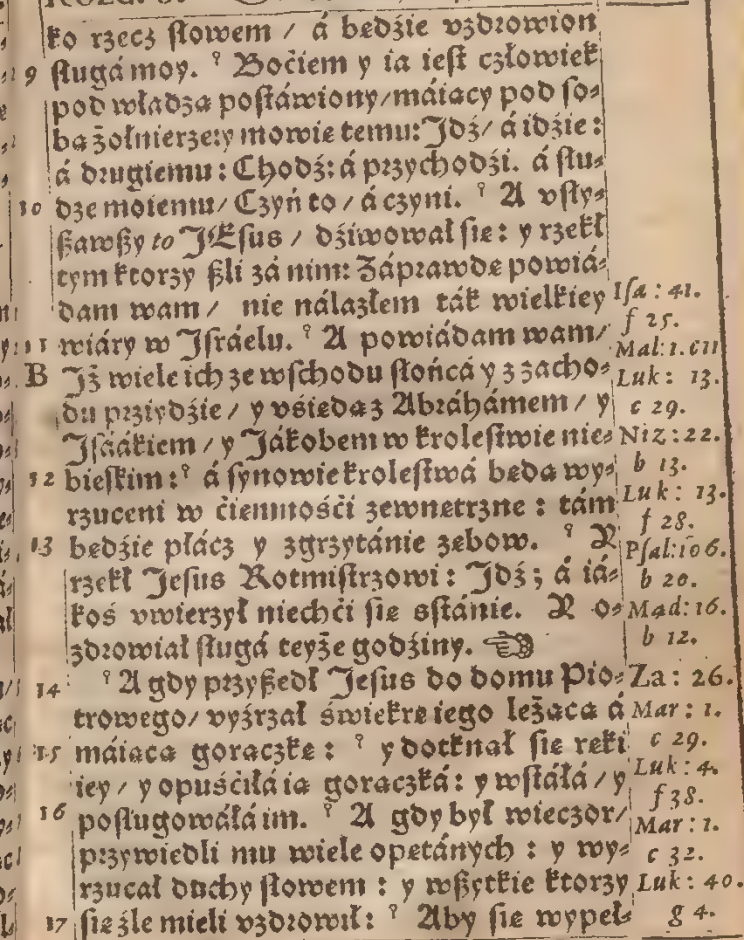 ko rzecz słowem / á będźie vzdrowion
9 sługá moy. Boćiem y ia iest człowiek
pod władzą postáwiony / máiący pod so⸗
bą żołnierze: y mowię temu: Idź / á idźie:
á drugiemu: Chodź: á przychodźi. á słu⸗
10 dze moiemu / Czyń to / á czyni. A vsły⸗
ßawßy to IEsus / dźiwował się: y rzekł
tym ktorzy ßli zá nim: Záprawdę powiá⸗
dam wam / nie nálazłem ták wielkiey
11 wiáry w Isráelu. A powiádam wam /
B Iż wiele ich ze wschodu słońcá y z zacho⸗
du przyidźie / y vśiedą z Abráhámem / y
Isáákiem / y Iákobem w krolestwie nie⸗
12 bieskim: á synowie krolestwá będą wy⸗
rzuceni w ćiemnośći zewnętrzne: tám
13 będźie płácz y zgrzytánie zębow. Y
rzekł Iesus Rotmistrzowi: Idź; á iá⸗
koś vwierzył niechći się sstánie. Y o⸗
zdrowiał sługá teyże godźiny. ☜
14 A gdy przyßedł Iesus do domu Pio⸗
trowego / vyźrzał świekrę iego leżącą á
15 máiącą gorączkę: y dotknął się ręki
iey / y opuśćiłá ią gorączká: y wstáłá / y
16 posługowáłá im. A gdy był wieczor /
przywiedli mu wiele opętánych: y wy⸗
rzucał duchy słowem: y wßytkie ktorzy
17 się źle mieli vzdrowił: Aby się wypeł⸗
Isa: 41.
f 25.
Mal: 1. c 11
Luk: 13.
c 29.
Niz: 22.
b 13.
Luk: 13.
f 28.
Psal: 106.
b 20.
Mąd: 16.
b 12.
Za: 26.
Mar: 1.
c 29.
Luk: 4.
f 38.
Mar: 1.
c 32.
Luk: 40.
g 4.